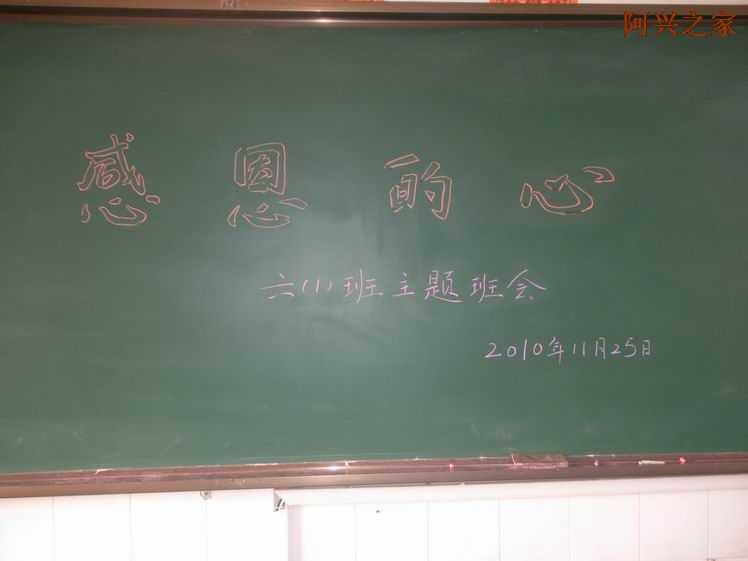 阿兴之家
感恩的心
六(1)班主题班会
2010年11月25日